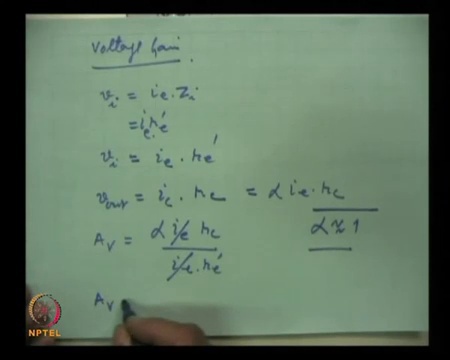 Voltage Gain.
v_i = i_e . Z_i
= i_e . r_e'
v_i = i_e . r_e'
v_out = i_c . r_c = α i_e . r_c
A_v = α i_e r_c / i_e . r_e'
α ≈ 1
A_v
NPTEL